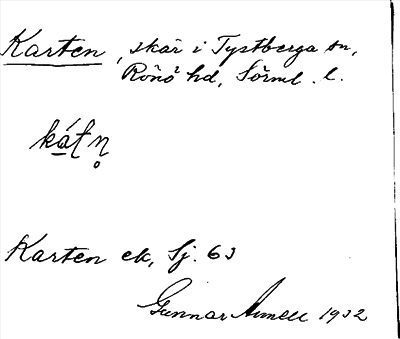 Karten, skär i Tystberga sn,
Rönö hd, Sörml. l.
Karten ek, Sj. 63
Gunnar Arnell 1932